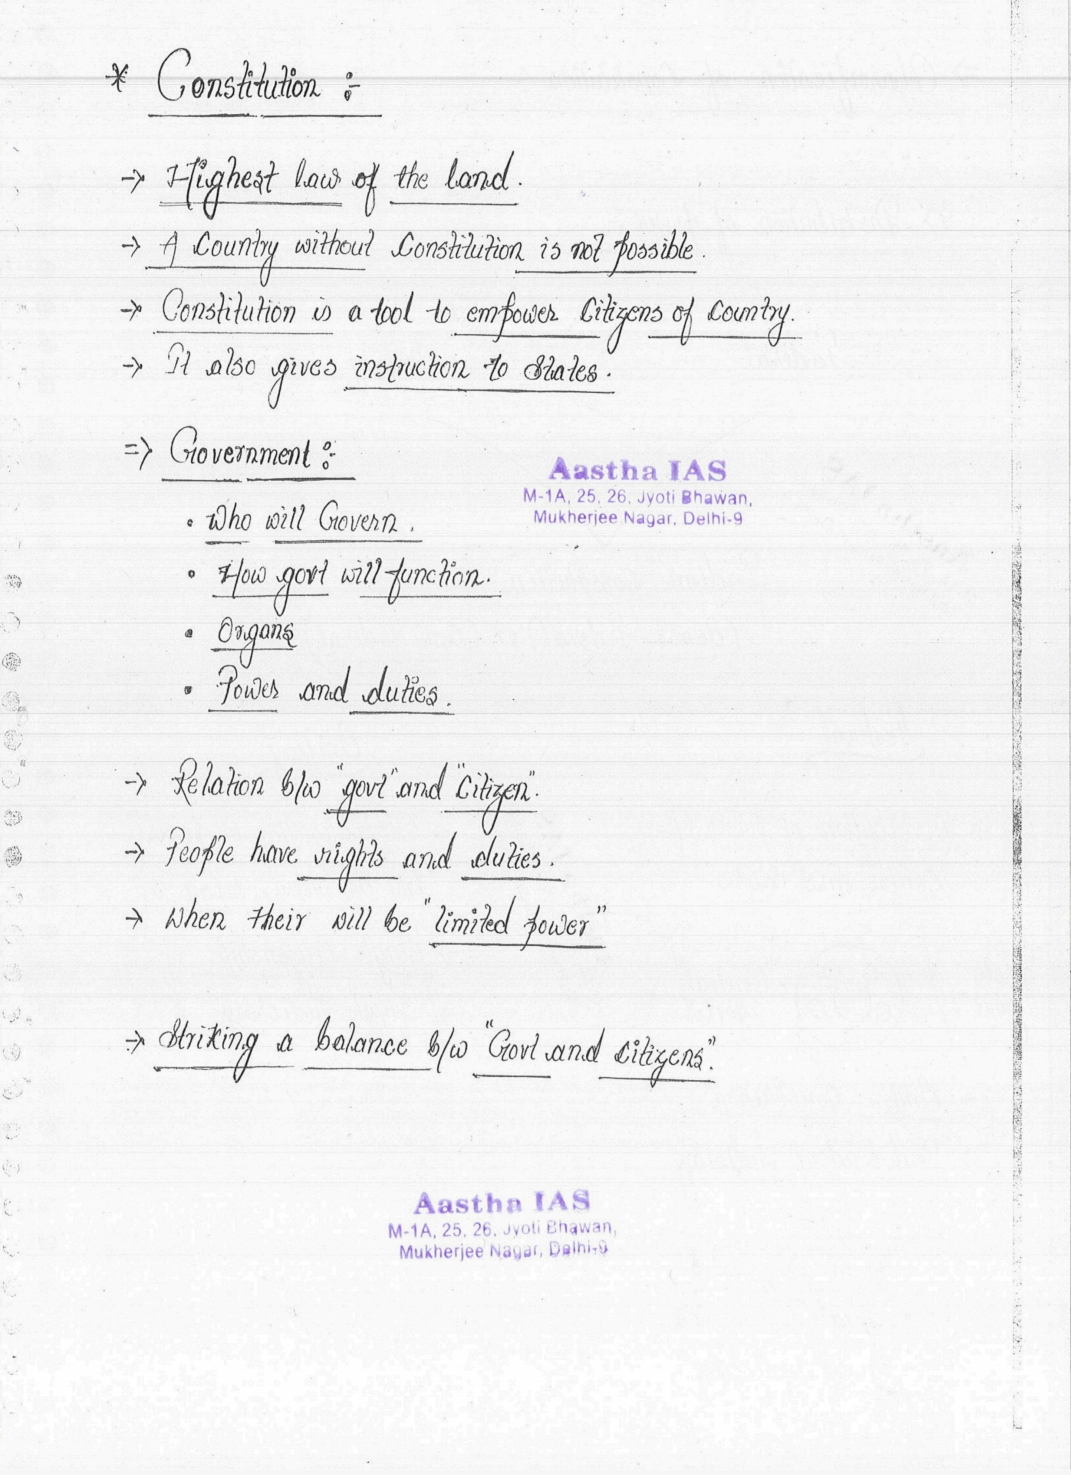 * Constitution :-
→ Highest law of the land.
→ A Country without Constitution is not possible.
→ Constitution is a tool to empower Citizens of Country.
→ It also gives instruction to States.
⇒ Government :-
• Who will Govern.
• How govt will function.
• Organs
• Power and duties.
Aastha IAS
M-1A, 25, 26, Jyoti Bhawan,
Mukherjee Nagar, Delhi-9
→ Relation b/w "govt" and "Citizen".
→ People have rights and duties.
→ When their will be "limited power"
→ Striking a balance b/w "Govt and citizens".
Aastha IAS
M-1A, 25, 26, Jyoti Bhawan,
Mukherjee Nagar, Delhi-9